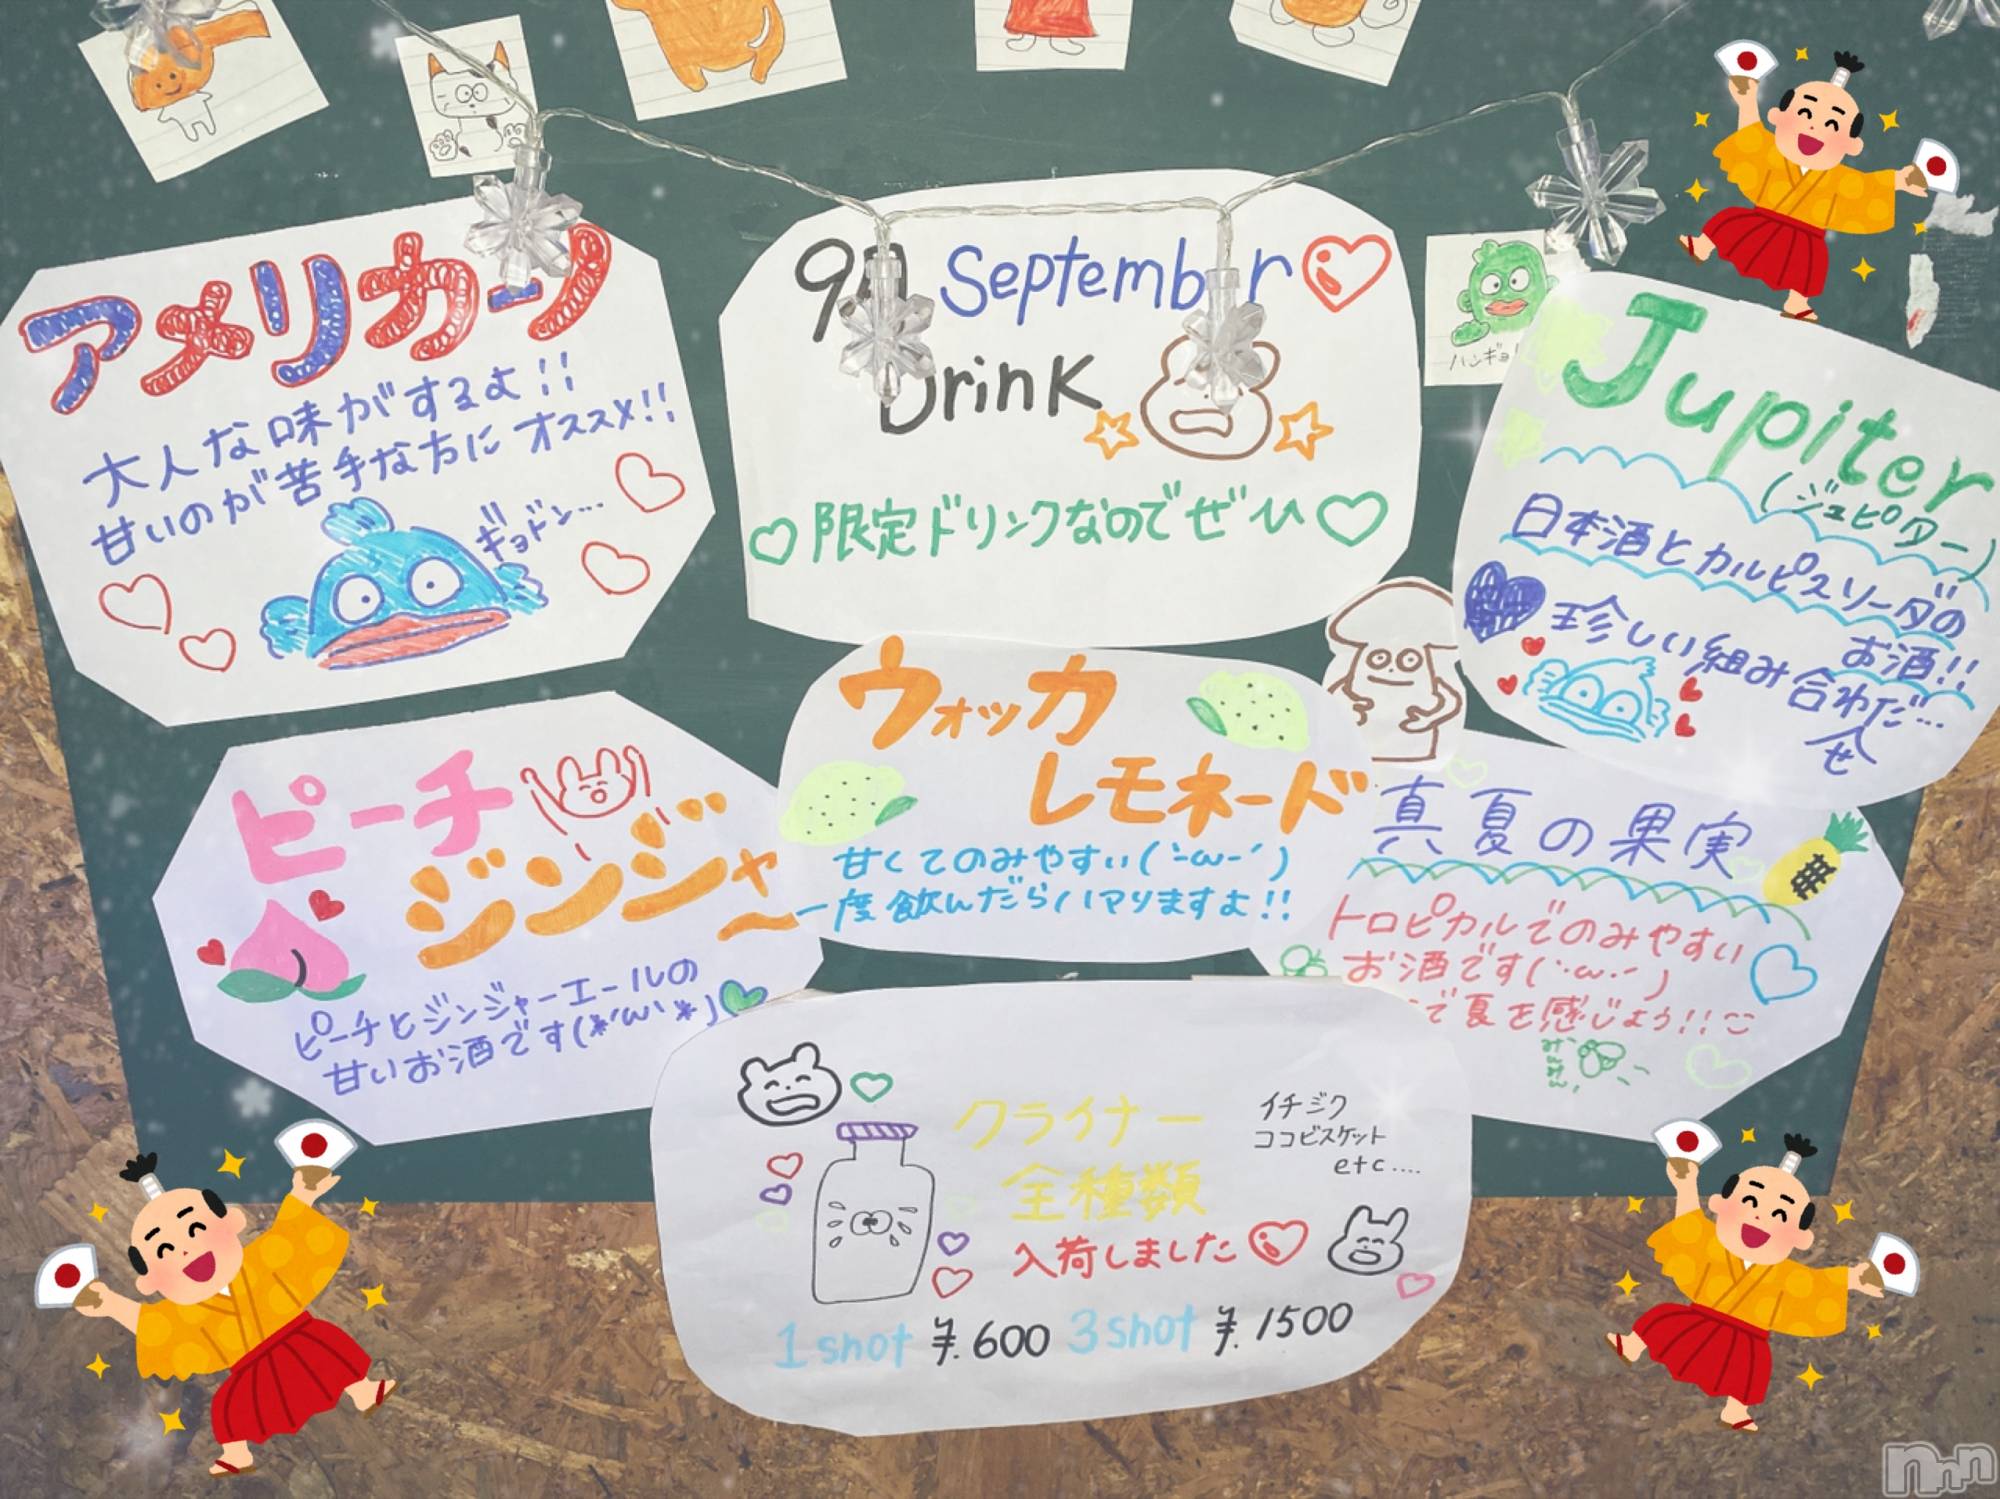 アメリカーノ
大人な味がするよ!!
甘いのが苦手な方にオススメ!!
ギョドン...
9月 September
Drink
限定ドリンクなのでぜひ
ハンギョ
Jupiter
(ジュピター)
日本酒とカルピスソーダの
お酒!!
珍しい組み合わだ...
せ
ピーチ
ジンジャー
ピーチとジンジャーエールの
甘いお酒です(*'ω'*)
ウォッカ
レモネード
甘くてのみやすい(`-ω-´)
一度飲んだらハマりますよ!!
真夏の果実
トロピカルでのみやすい
お酒です(`・ω・´)
で夏を感じよう!!
クライナー
全種類
入荷しました
イチジク
ココビスケット
etc....
1 shot ¥.600 3 shot ¥.1500
nnn